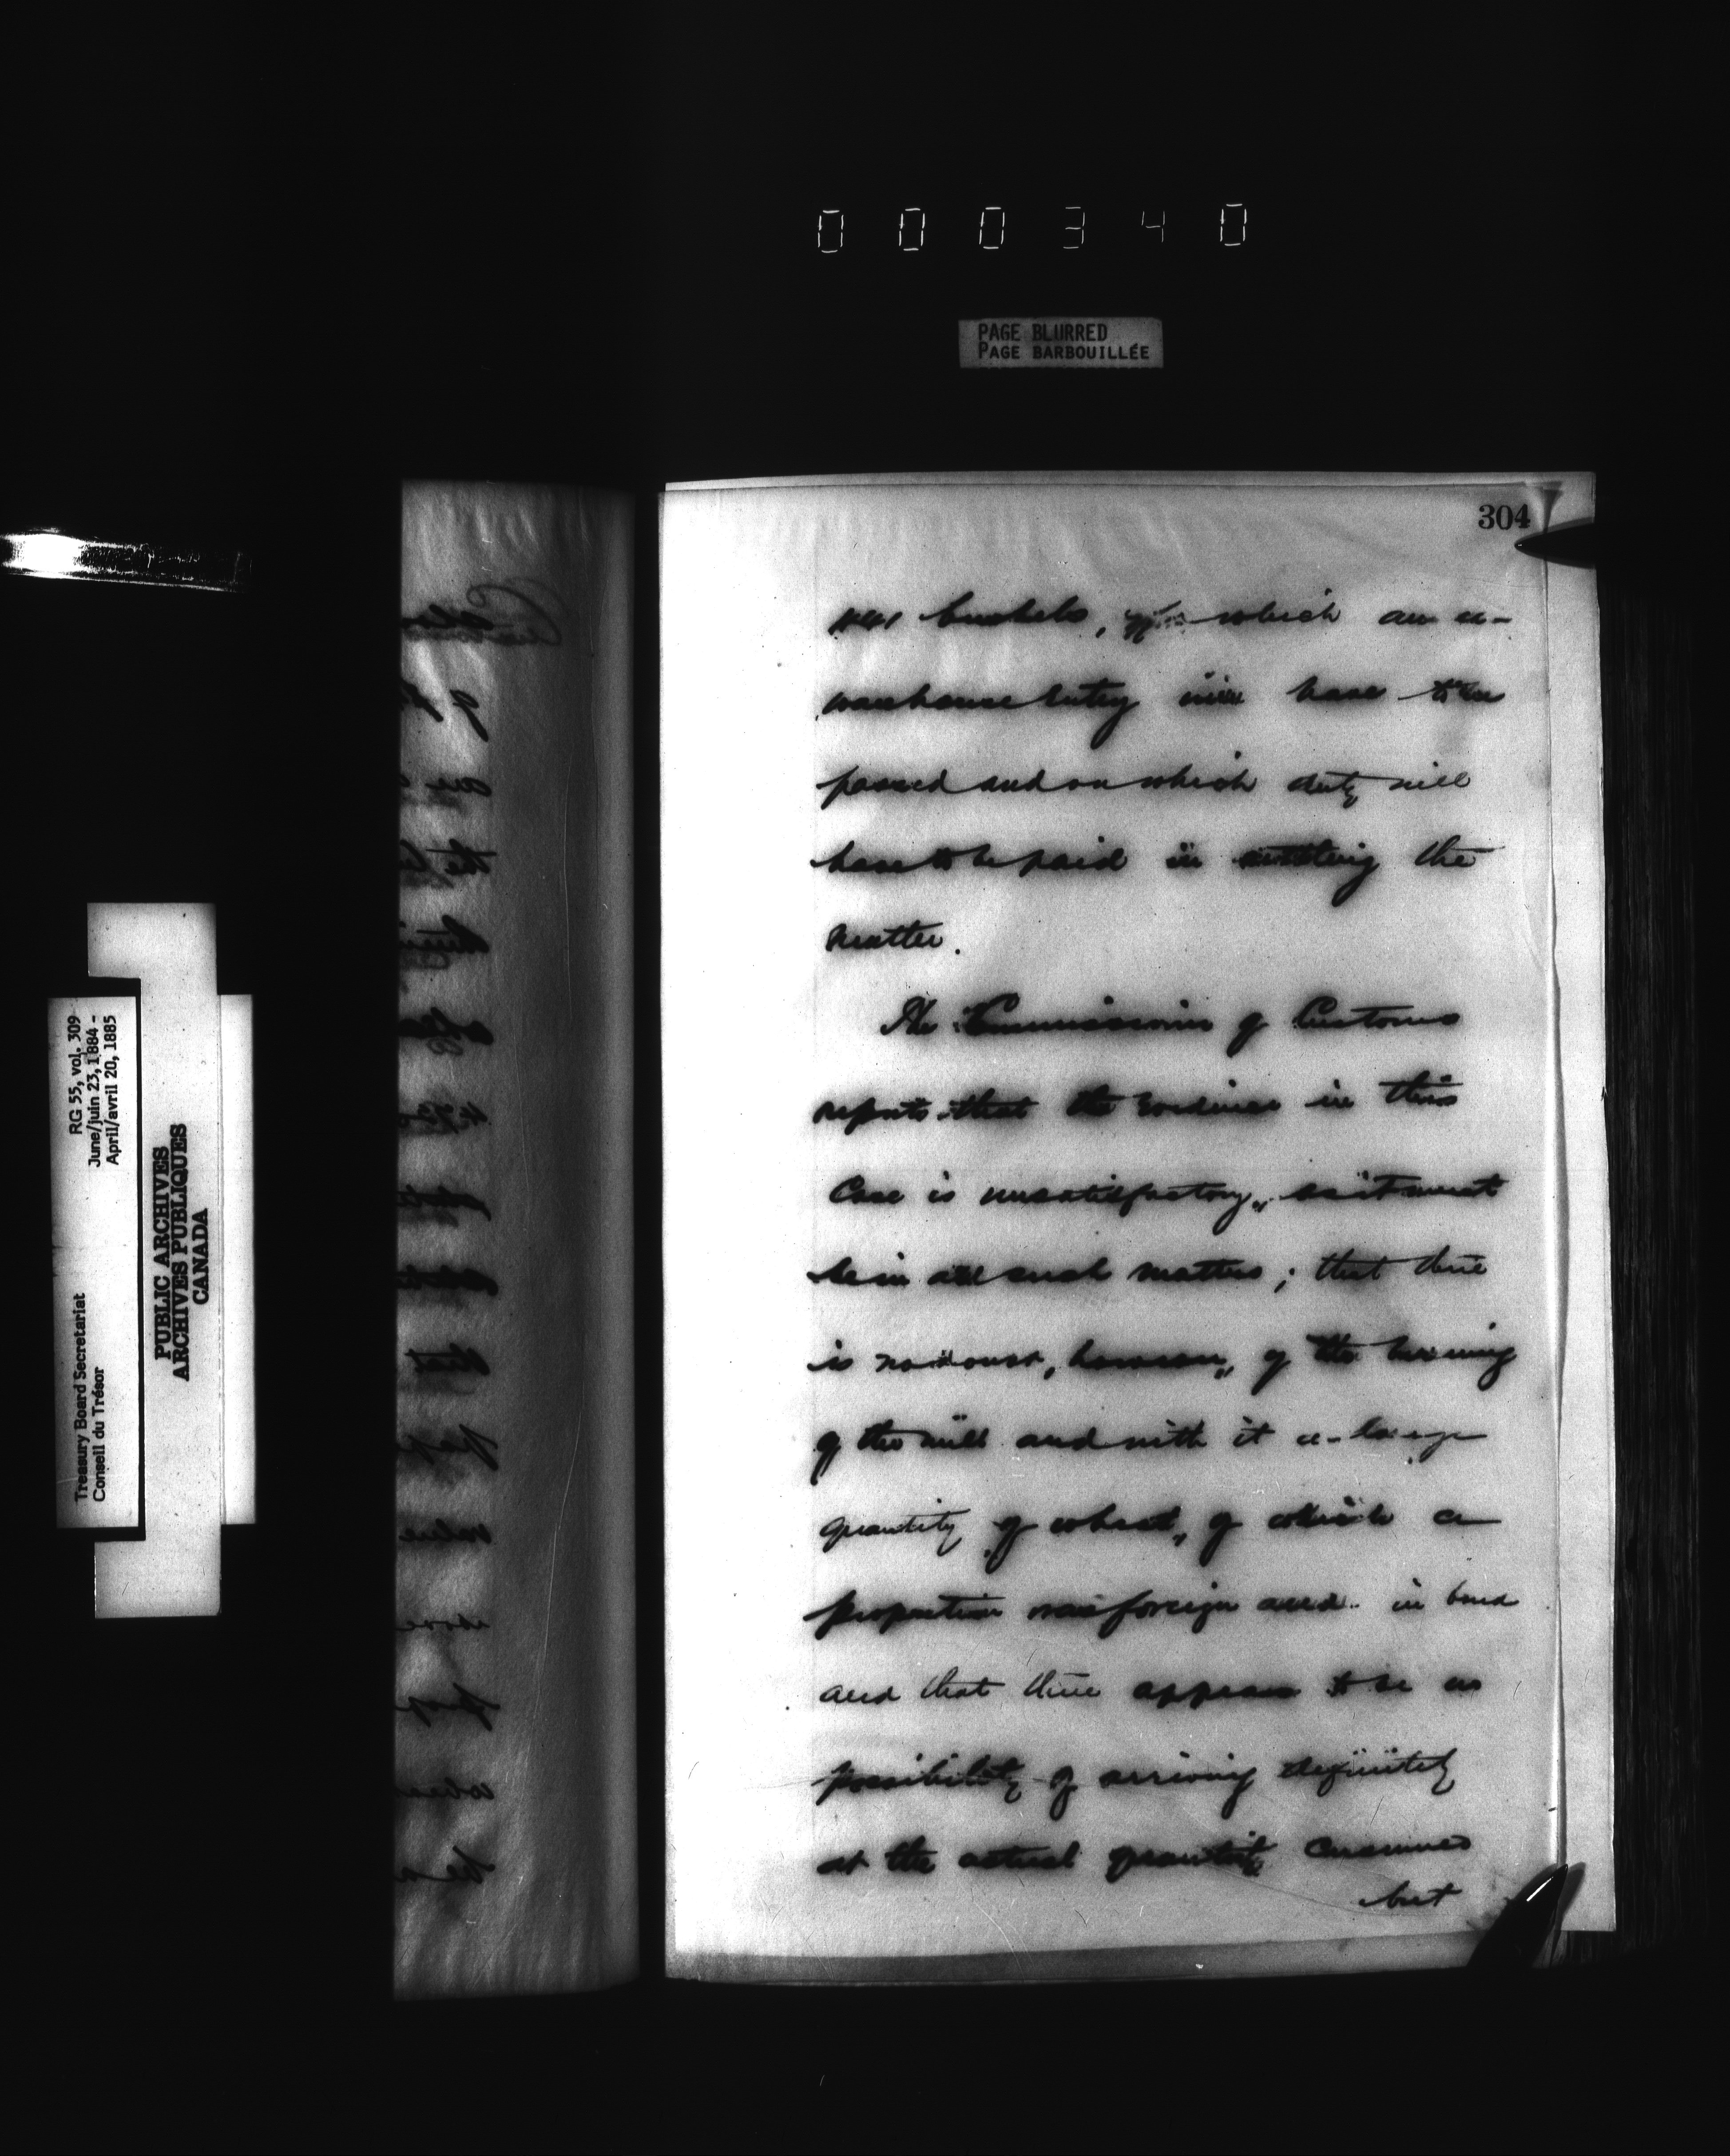 000340
PAGE BLURRED
PAGE BARBOUILLÉE
304
bushels, of which an ex-
warehouse entry will have to be
passed and on which duty will
have to be paid in settling the
matter.
The Commissioner of Customs
reports that the evidence in this
case is unsatisfactory, as it must
be in all such matters; that there
is no doubt, however, of the burning
of the mill and with it a large
quantity of wheat, of which a
proportion was foreign and in bond
and that there appears to be no
possibility of arriving definitely
at the actual quantity consumed
but
RG 55, vol. 309
June/juin 23, 1884 -
April/avril 20, 1885
Treasury Board Secretariat
Conseil du Trésor
PUBLIC ARCHIVES
ARCHIVES PUBLIQUES
CANADA